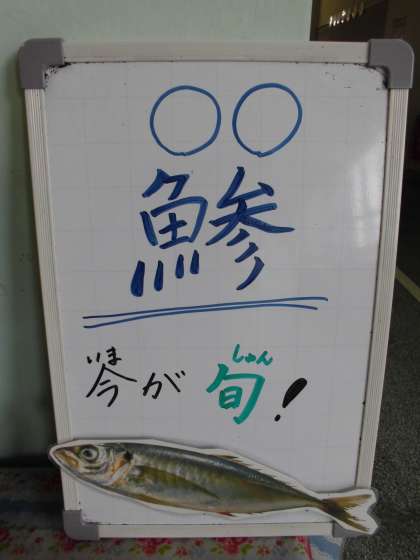 ○○
鰺
いま しゅん
今が旬!